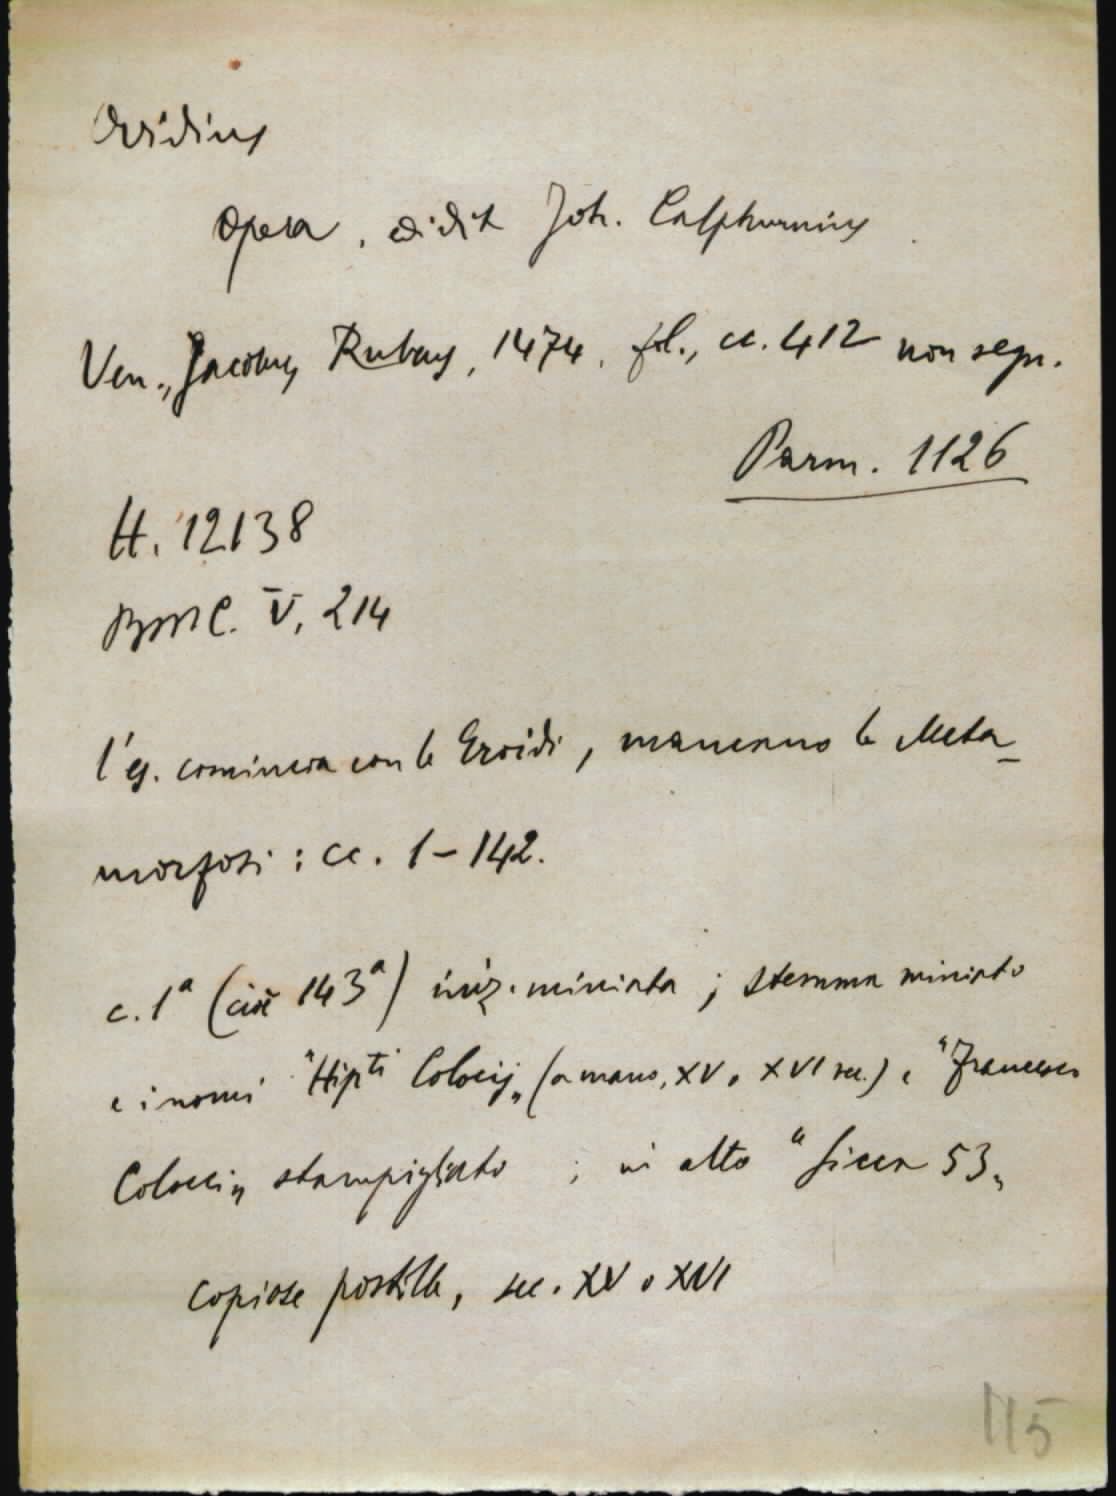 Ovidius
Opera, edidit Joh. Calphurnius.
Ven., Jacobus Rubeus, 1474, fol., cc. 412 non segn.
Parm. 1126
H. 12138
BMC. V, 214
l'es. comincia con le Eroidi, mancano le Meta-
morfosi: cc. 1-142.
c. 1ª (cioè 143ª) iniz. miniata; stemma miniato
e i nomi "Hipti Colocij„ (a mano, XV o XVI sec.) e "Francesco
Colocci„ stampigliato ; in alto " 53„
copiose postille, sec. XV o XVI
115